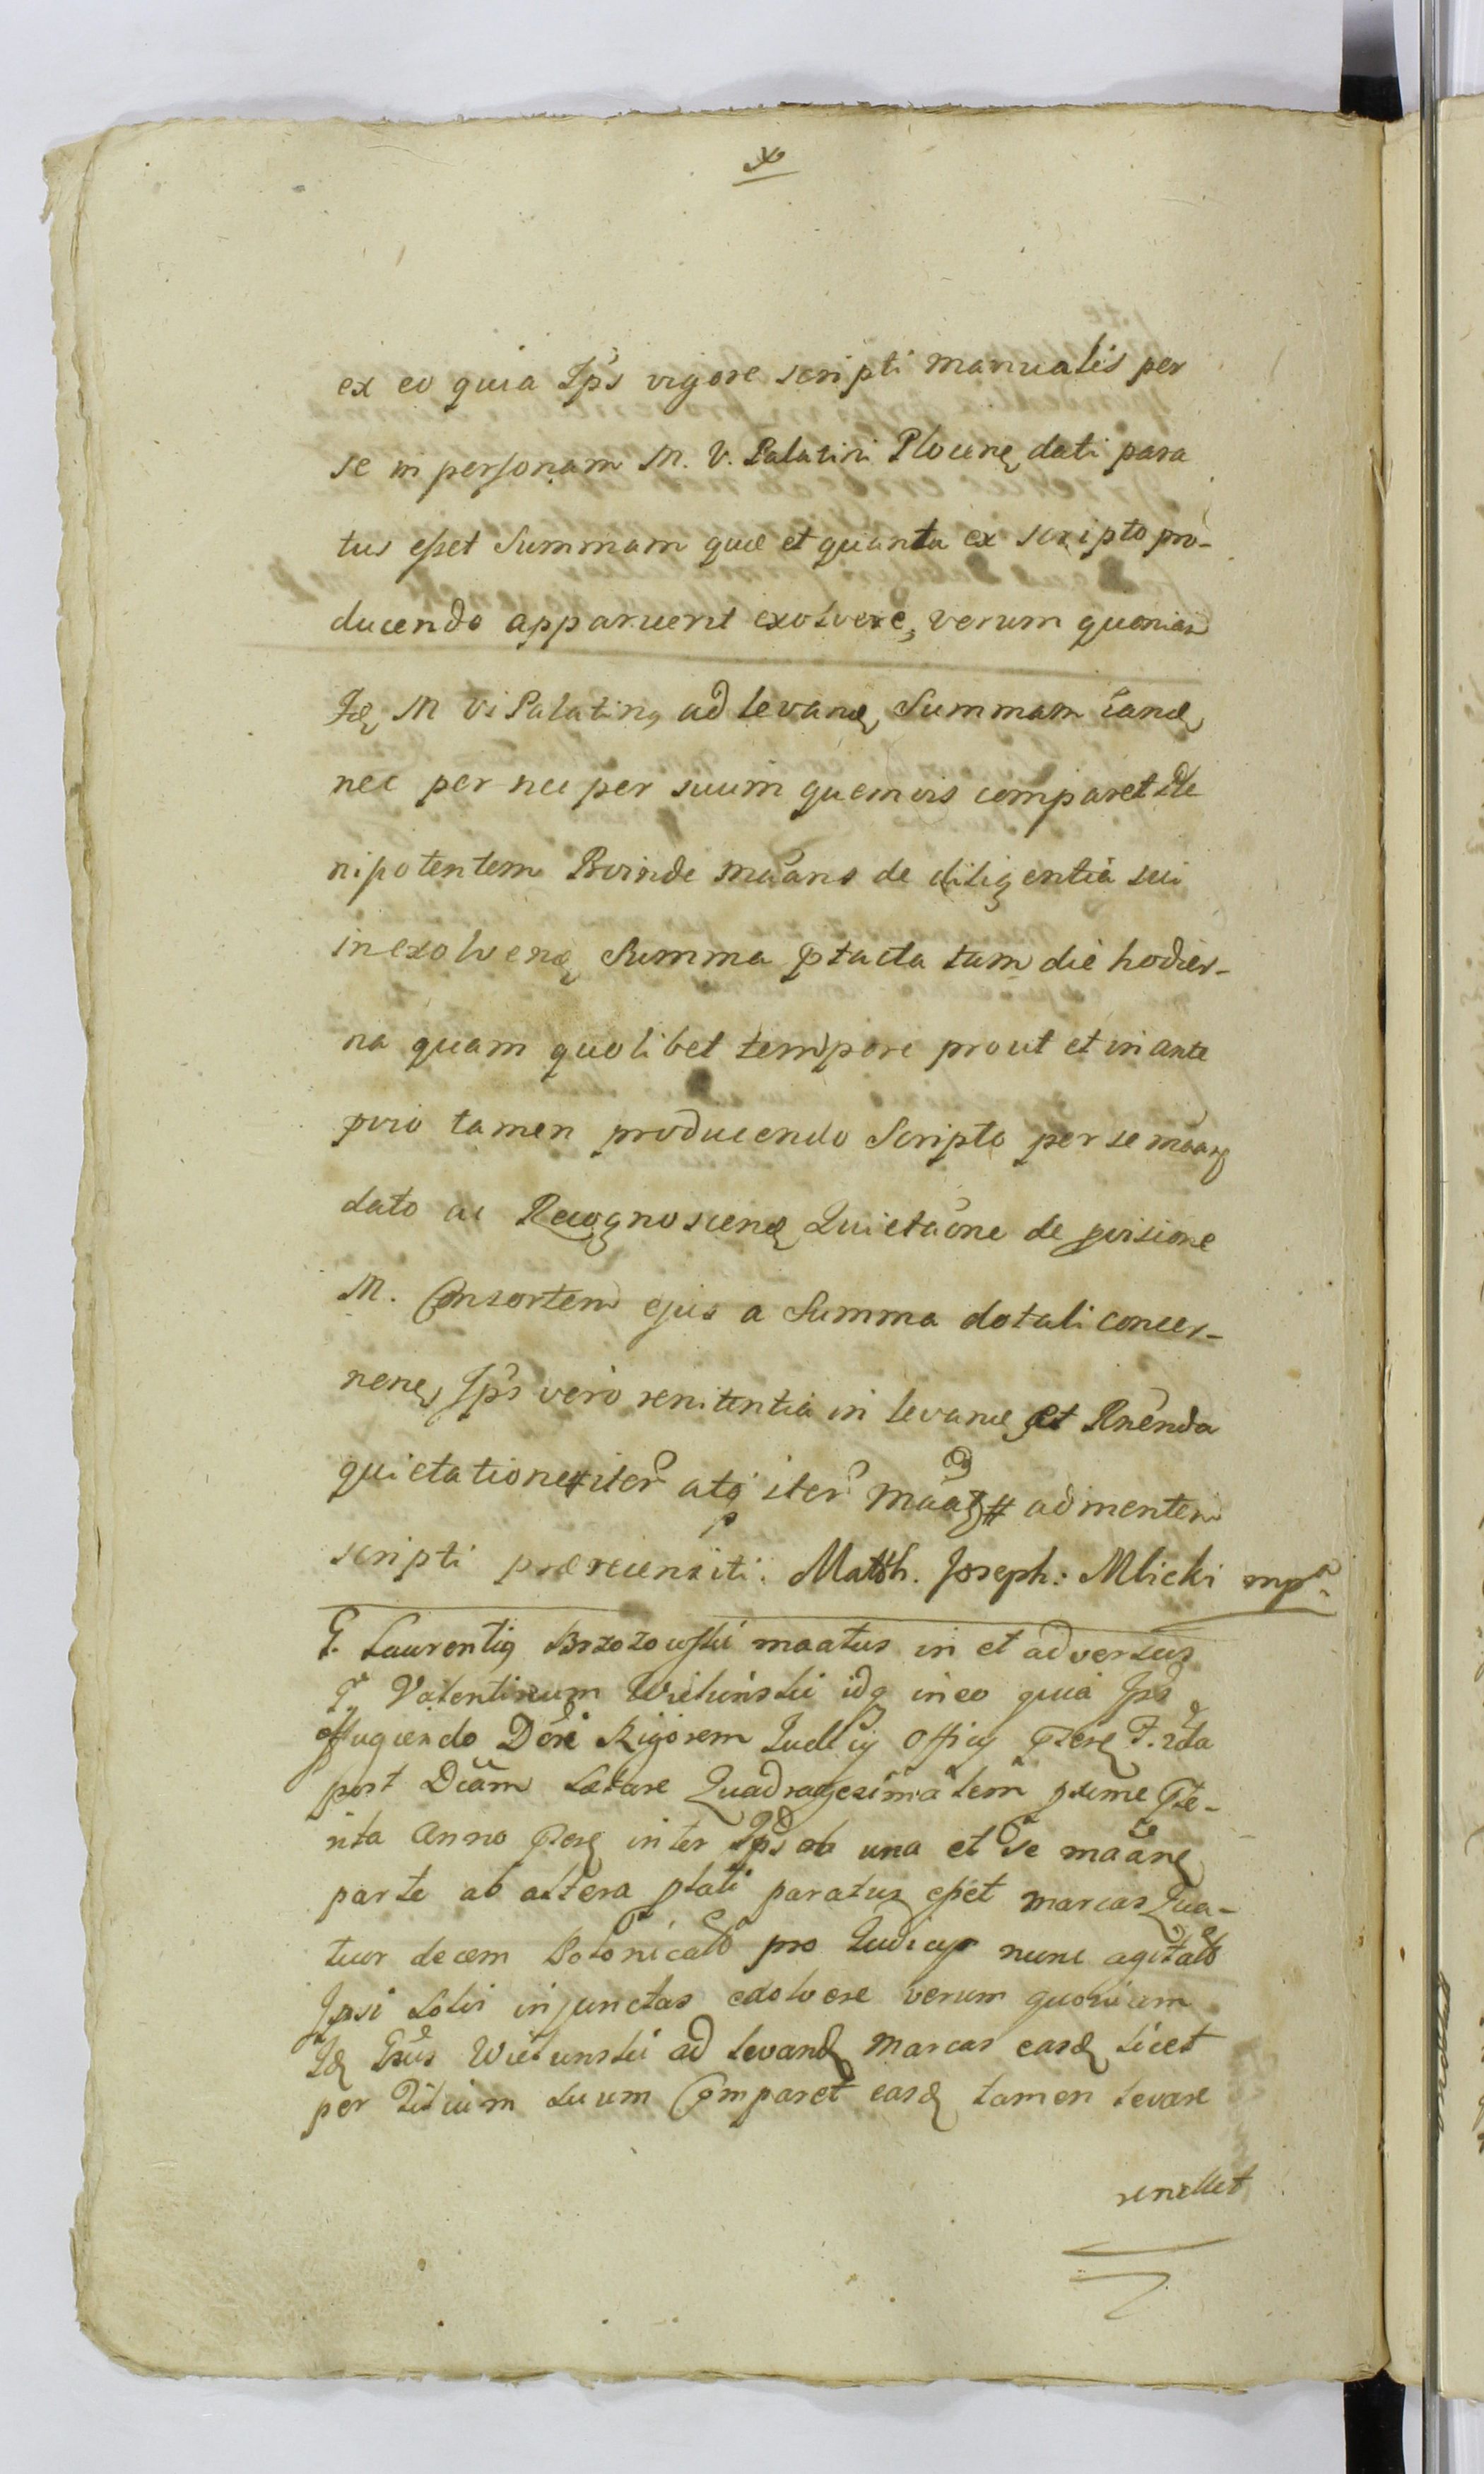 ex eo quia Ips vigore scripti manualis per
se in personam M. V. Palatini Plocen dati para
tus esset Summam quæ et quanta ex scripto pro-
ducendo apparuerit exolvere, verum quoniam
Id M Vi Palating ad levand Summam eand
nec per nec per suum quemvis comparet Ple
nipotentem Proinde mãans de diligentia sui
in exolvend Summa ptacta tam die hodier-
na quam quolibet tempore prout et in ante
prio tamen producendo Scripto per se mãan
dato ac Recognoscend Quietaone de
M. Consortem ejus a Summa dotali concer-
nen, Ips vero renitentia in levand et Rnenda
quietatione iter atq iter mãat # ad mentem
scripti prærecensiti. Matth. Joseph: Mlicki mpa
G. Laurentig Brzozowski maatus in et adversus
G. Valentinum Wieluński idq in eo quia Ips
effugiendo Dcre Rigorem Judicy Officy Pzesen F. 2da
post Dcam Lætare Quadragesimalem pxime Pte-
rita Anno Pzen inter Ips ab una et Se mãane
parte ab altera plati paratus esset marcas Qua-
tuor decem Polonical pro Judicys nunc agital
Ipsi solvi injunctas exolvere verum quoniam
Id Gsus Wielunski ad levand Marcas easd licet
per Filium suum Comparet easd tamen levare
renellet